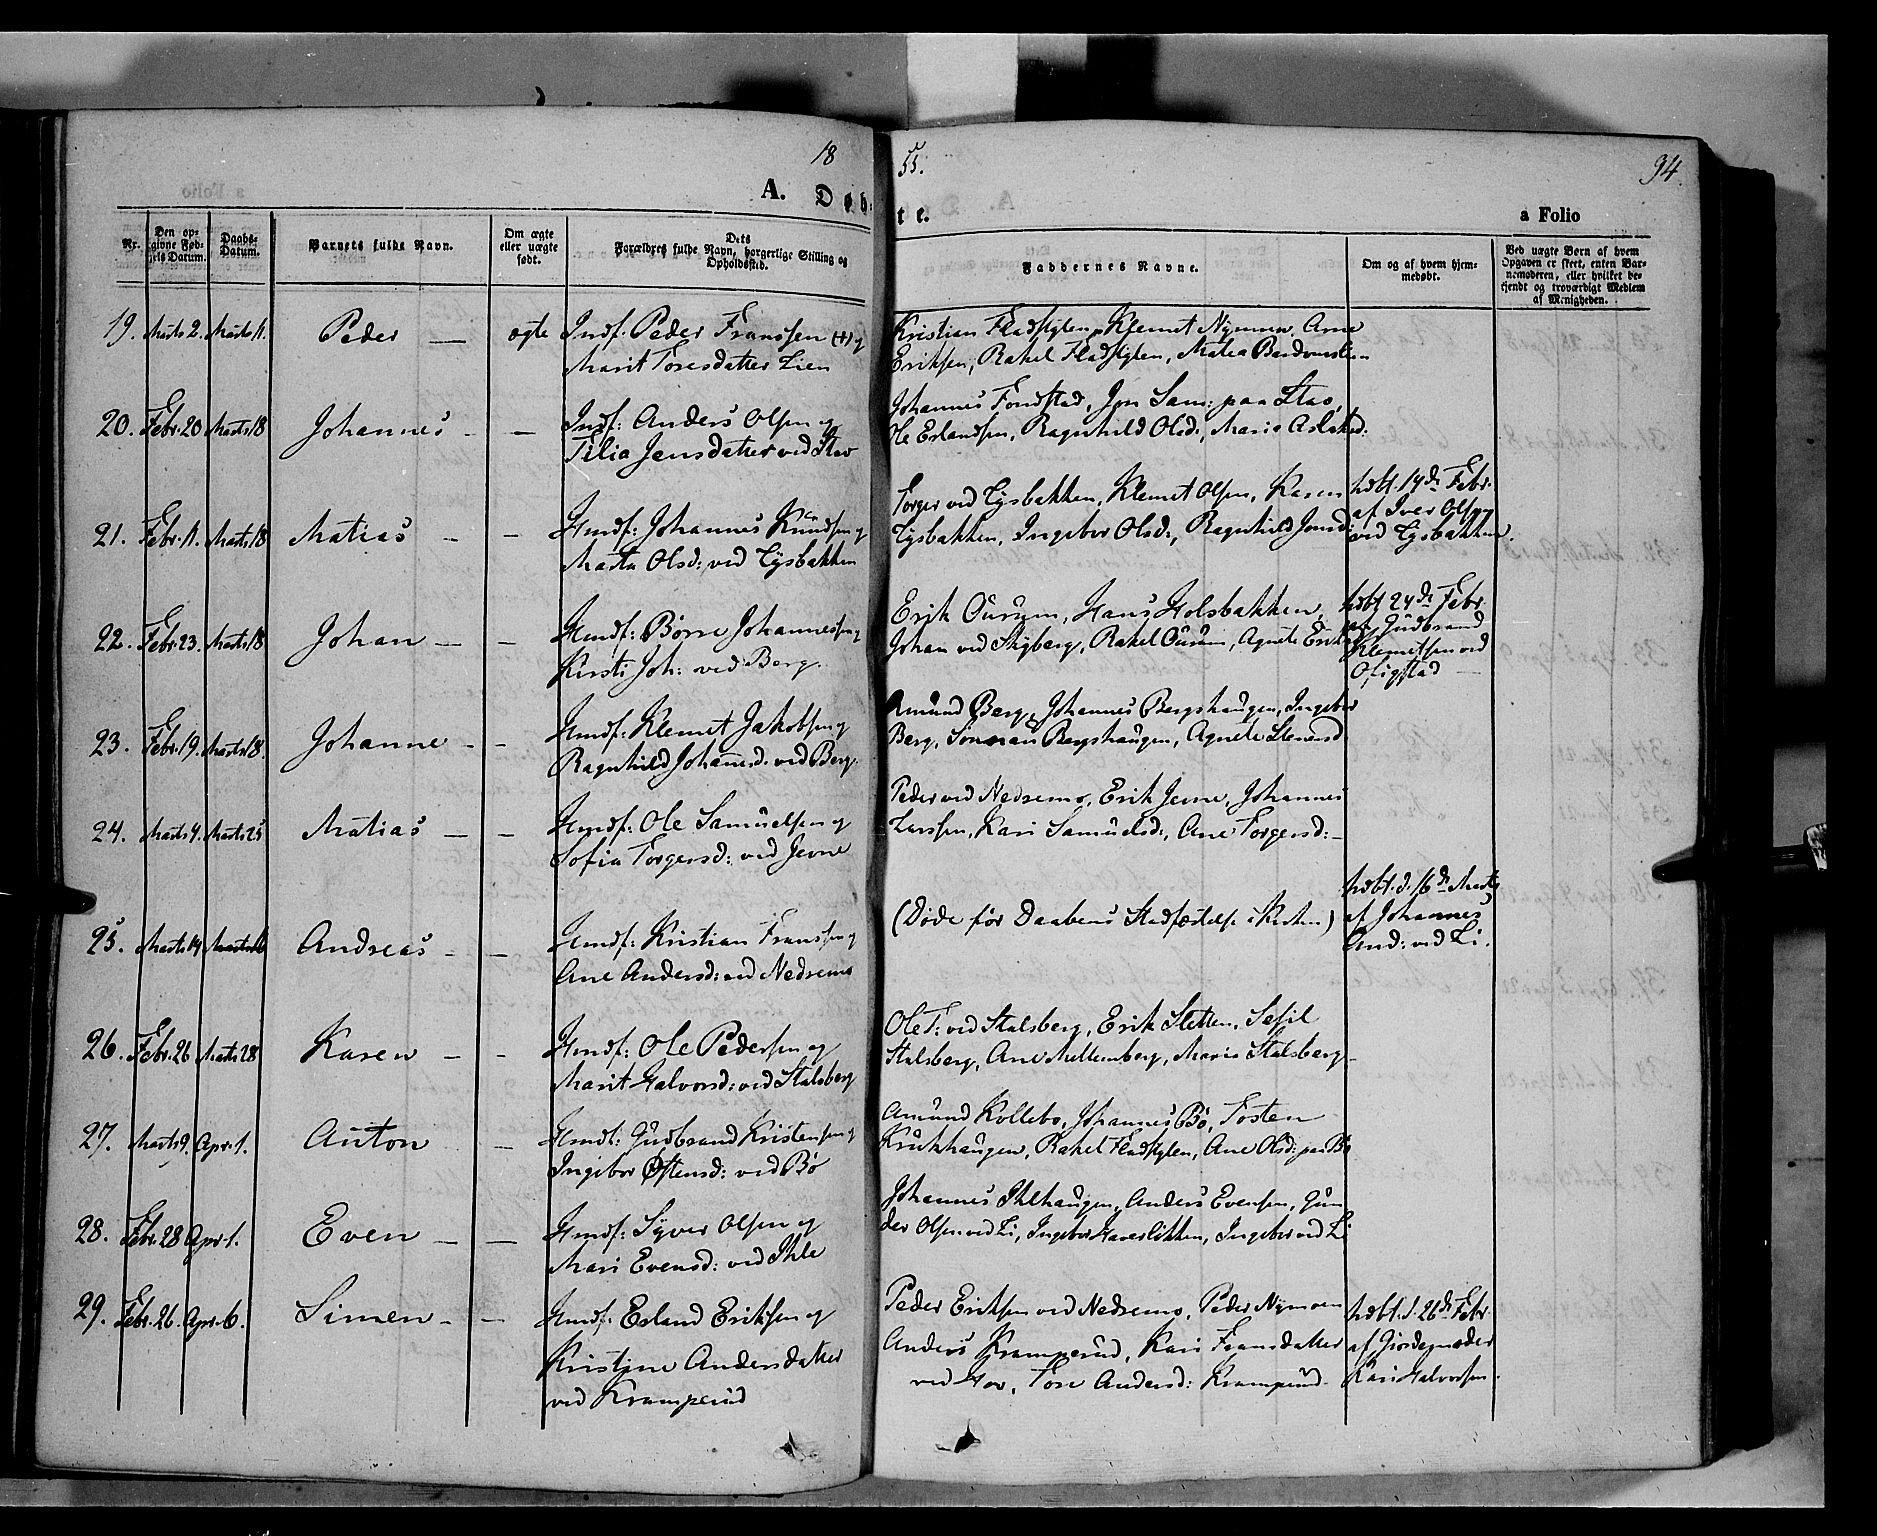 1855.
94.
A. Døbte.
a Folio
Nr.
Den opgivne Fødsels Datum.
Daabs-Datum.
Barnets fulde Navn.
Om ægte eller uægte født.
Dets Forældres fulde Navn, borgerlige Stilling og Opholdssted.
Faddernes Navne.
Om og af hvem hjemmedøbt.
Ved uægte Børn af hvem Opgaven er skeet, enten Barnemoderen, eller hvilket bekjendt og troværdigt Medlem af Menigheden.
19. Marts 2. Marts 11. Peder — ægte Indf. Peder Franssen (+) og
Marit Toresdatter Lien
Kristian Fladstylen, Klemet Nymoen, Arne
Eriksen, Rakel Fladstylen, Matea
20. Febr. 20 Marts 18 Johannes - — Indf: Anders Olsen og
Jensdatter ved Stav
Johannes Fondstad, Jon Sam: paa Stav,
Ole Erlandsen, Ragnhild Olsd:, Maria
21. Febr. 11. Marts 18 Matias - - Hmdf: Johannes Knudsen og
Marta Olsd: ved Lysbakken
Torger ved Lysbakken, Klemet Olsen, Karen
Lysbakken, Ingebor Olsd:, Ragnhild Jonsd:
hdbt. 14de Febr.
af Iver Olsen
ved Lysbakken.
22. Febr. 23. Marts 18 Johan — — Hmdf: Børre Johannessen og
Kirsti Joh: ved Berg.
Erik Hans Holsbakken,
Johan ved Rakel Agnete
hdbt 24de Febr.
af Gudbrand
Klemetsen ved
23. Febr. 19. Marts 18. Johanne - - Hmdf: Klemet Jakobsen og
Ragnhild Johannesd. ved Berg.
Amund Berg, Johannes Bergshaugen, Ingebor
Berg, Bergshaugen, Agnete Stenersd.
24. Marts 4. Marts 25 Matias — — Hmdf: Ole Samuelsen og
Sofia Torgersd: ved Jevne
Peder ved Nedremo, Erik Jevne, Johannes
Larssen, Kari Samuelsd:, Ane Torgersd: -
25. Marts 14 Marts 16 Andreas - - Hmdf: Kristian Franssen og
Ane Andersd: ved Nedremo
(Døde før Daabens Stadfæstelse i Kirken)
hdbt. d. 16de Marts
af Johannes
And: ved Li.
26. Febr. 26 Marts 28 Karen - - Hmdf: Ole Pedersen og
Marit Halvorsd: ved Stalsberg
Ole T: ved Stalsberg, Erik Sletten,
Stalsberg, Ane Mellemberg, Maria Stalsberg -
27. Marts 9. Apr. 1. Anton - Hmdf: Gudbrand Kristensen og
Ingebor Østensd: ved Bø
Amund Kollebo, Johannes Bø, Tosten
Krukhaugen, Rakel Fladstylen, Ane Olsd: paa Bø
28. Febr. 28 Apr. 1. Even — — Hmdf: Syver Olsen og
Mari Evensd: ved Ihle
Johannes Ihlehaugen, Anders Evensen, Gun
der Olsen ved Li, Ingebor Haverlikken, Ingebor ved Li
29. Febr. 26. Apr. 6. Simen - - Hmdf: Erland Eriksen og
Kristine Andersdatter
ved Kramperud
Peder Eriksen ved Nedremo, Peder Nymoen
Anders Kramperud, Kari Fransdatter
ved Hov, Tore Andersd: Kramperud.
hdbt. d. 26de Febr.
af Giordemoder
Kari Halvorsen.